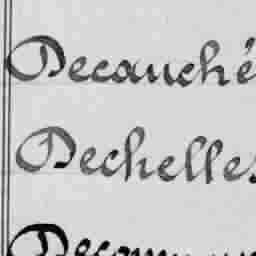 Decauché
Dechelles